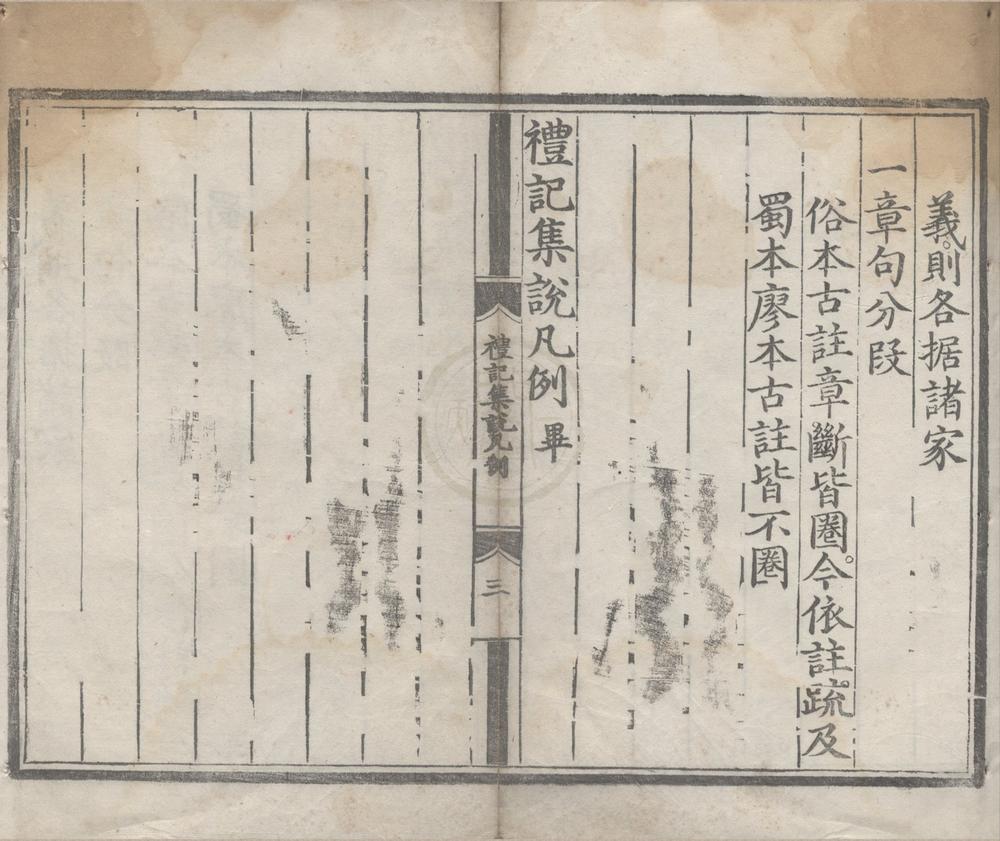 義則各据諸家
一章句分段
俗本古註章斷皆圈。今依註疏及
蜀本廖本古註皆不圈
禮記集說凡例 畢
禮記集說凡例
三